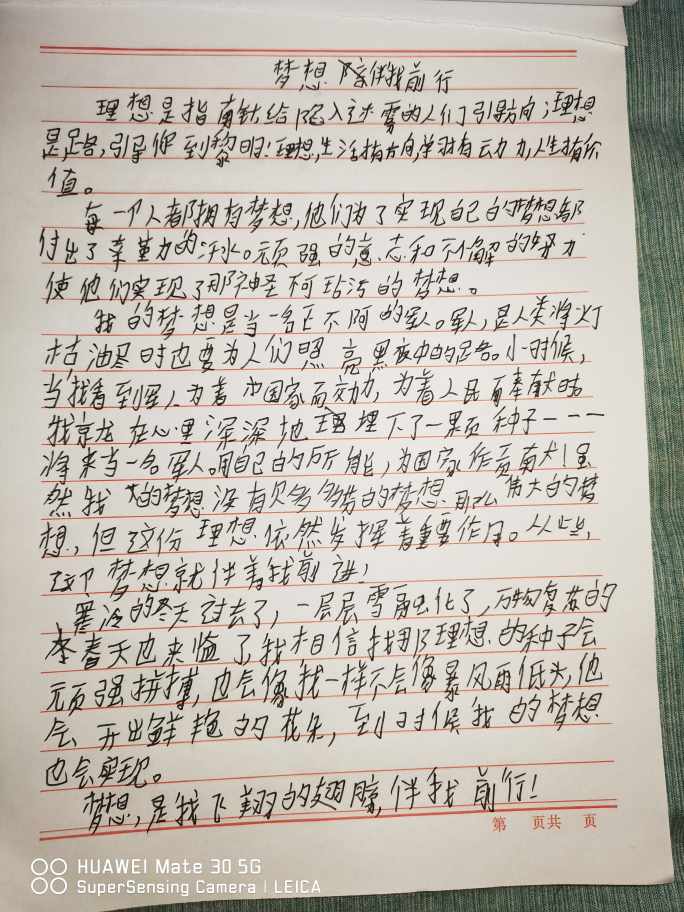 梦想陪伴我前行
理想是指南针,给陷入迷雾的人们引导方向;理想
是路,引导你到黎明。理想,生活才有方向,学习才有动力,人生才有价
值。
每一个人都拥有梦想,他们为了实现自己的梦想都
付出了辛勤的汗水。顽强的意志和不懈的努力
使他们实现了那神圣不可玷污的梦想。
我的梦想是当一名正不阿的军人。军人,是人类将灯
枯油寒时也要为人们照亮黑夜中的路。小时候,
当我看到军人为着国家而效力,为着人民而奉献时
我就在心里深深地埋下了一颗种子———
将来当一名军人。用自己的所能,为国家作贡献!虽
然我的梦想没有贝多芬的梦想那么伟大的梦
想,但这份理想依然发挥着重要作用。从此,
这个梦想就伴着我前进!
寒冷的冬天过去了,一层层雪融化了,万物复苏的
春天也来临了,我相信我那理想的种子会
顽强拼搏,也会像我一样不会像暴风雨低头,他
会开出鲜艳的花朵,到时候我的梦想
也会实现。
梦想,是我飞翔的翅膀,伴我前行!
第 页共 页
HUAWEI Mate 30 5G
SuperSensing Camera | LEICA